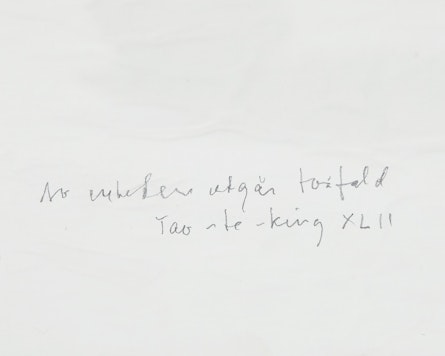 Av enheten utgår tvåfald
Tao-te-king XLII